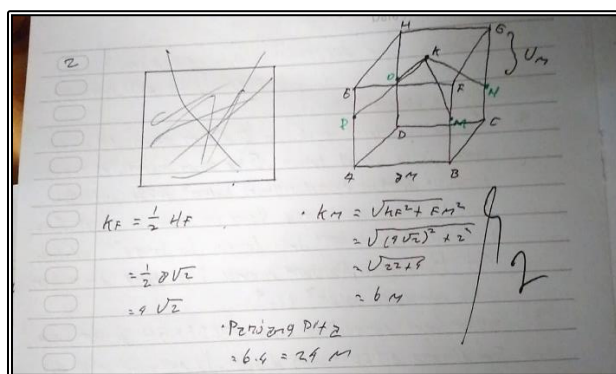 2
H
G
K
O
E
F
N
4M
P
M
D
C
A
8M
B
KF = 1/2 HF
= 1/2 8√2
= 4√2
• KM = √KF² + FM²
= √(4√2)² + 2²
= √32+4
= 6 M
2
• Panjang Pita
= 6.4 = 24 M